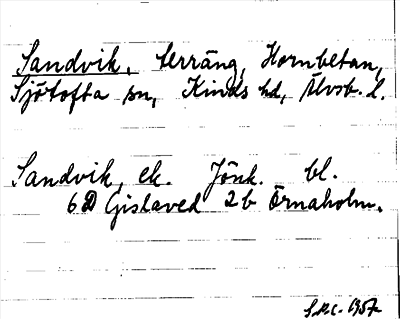 Sandvik, terräng, Hornbetan,
Sjötofta sn, Kinds hd, Älvsb. l.
Sandvik, ek. Jönk. bl.
6D Gislaved 2b Örnaholm.
1957